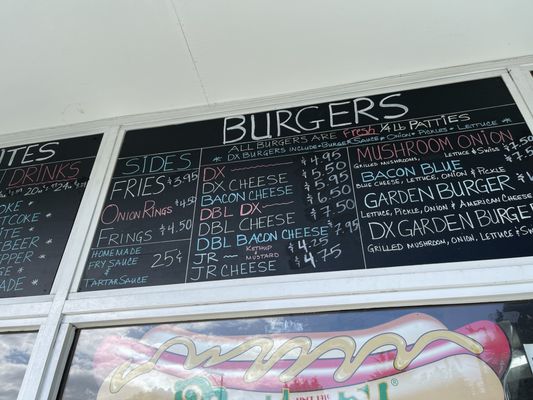 BURGERS
ALL BURGERS ARE Fresh 1/4 lb PATTIES
* DX BURGERS INCLUDE: BURGER SAUCE * ONION * PICKLES * LETTUCE *
DRINKS
SIDES
FRIES $3.95
ONION RINGS $4.50
FRINGS $4.50
HOMEMADE
FRY SAUCE
&
TARTAR SAUCE
25¢
DX $4.95
DX CHEESE $5.50
BACON CHEESE $5.95
DBL DX $6.50
DBL CHEESE $7.50
DBL BACON CHEESE $7.95
JR KETCHUP & MUSTARD $4.25
JR CHEESE $4.75
MUSHROOM ONION $7.50
GRILLED MUSHROOMS, LETTUCE & SWISS
BACON BLUE
BLUE CHEESE, LETTUCE, ONION & PICKLE
GARDEN BURGER
LETTUCE, PICKLE, ONION & AMERICAN CHEESE
DX GARDEN BURGER
GRILLED MUSHROOM, ONION, LETTUCE & SWISS